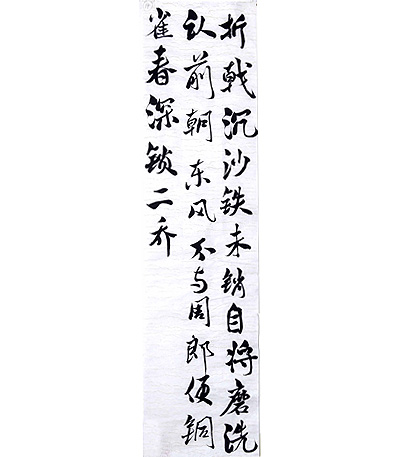 折戟沉沙铁未销自将磨洗
认前朝东风不与周郎便铜
雀春深锁二乔